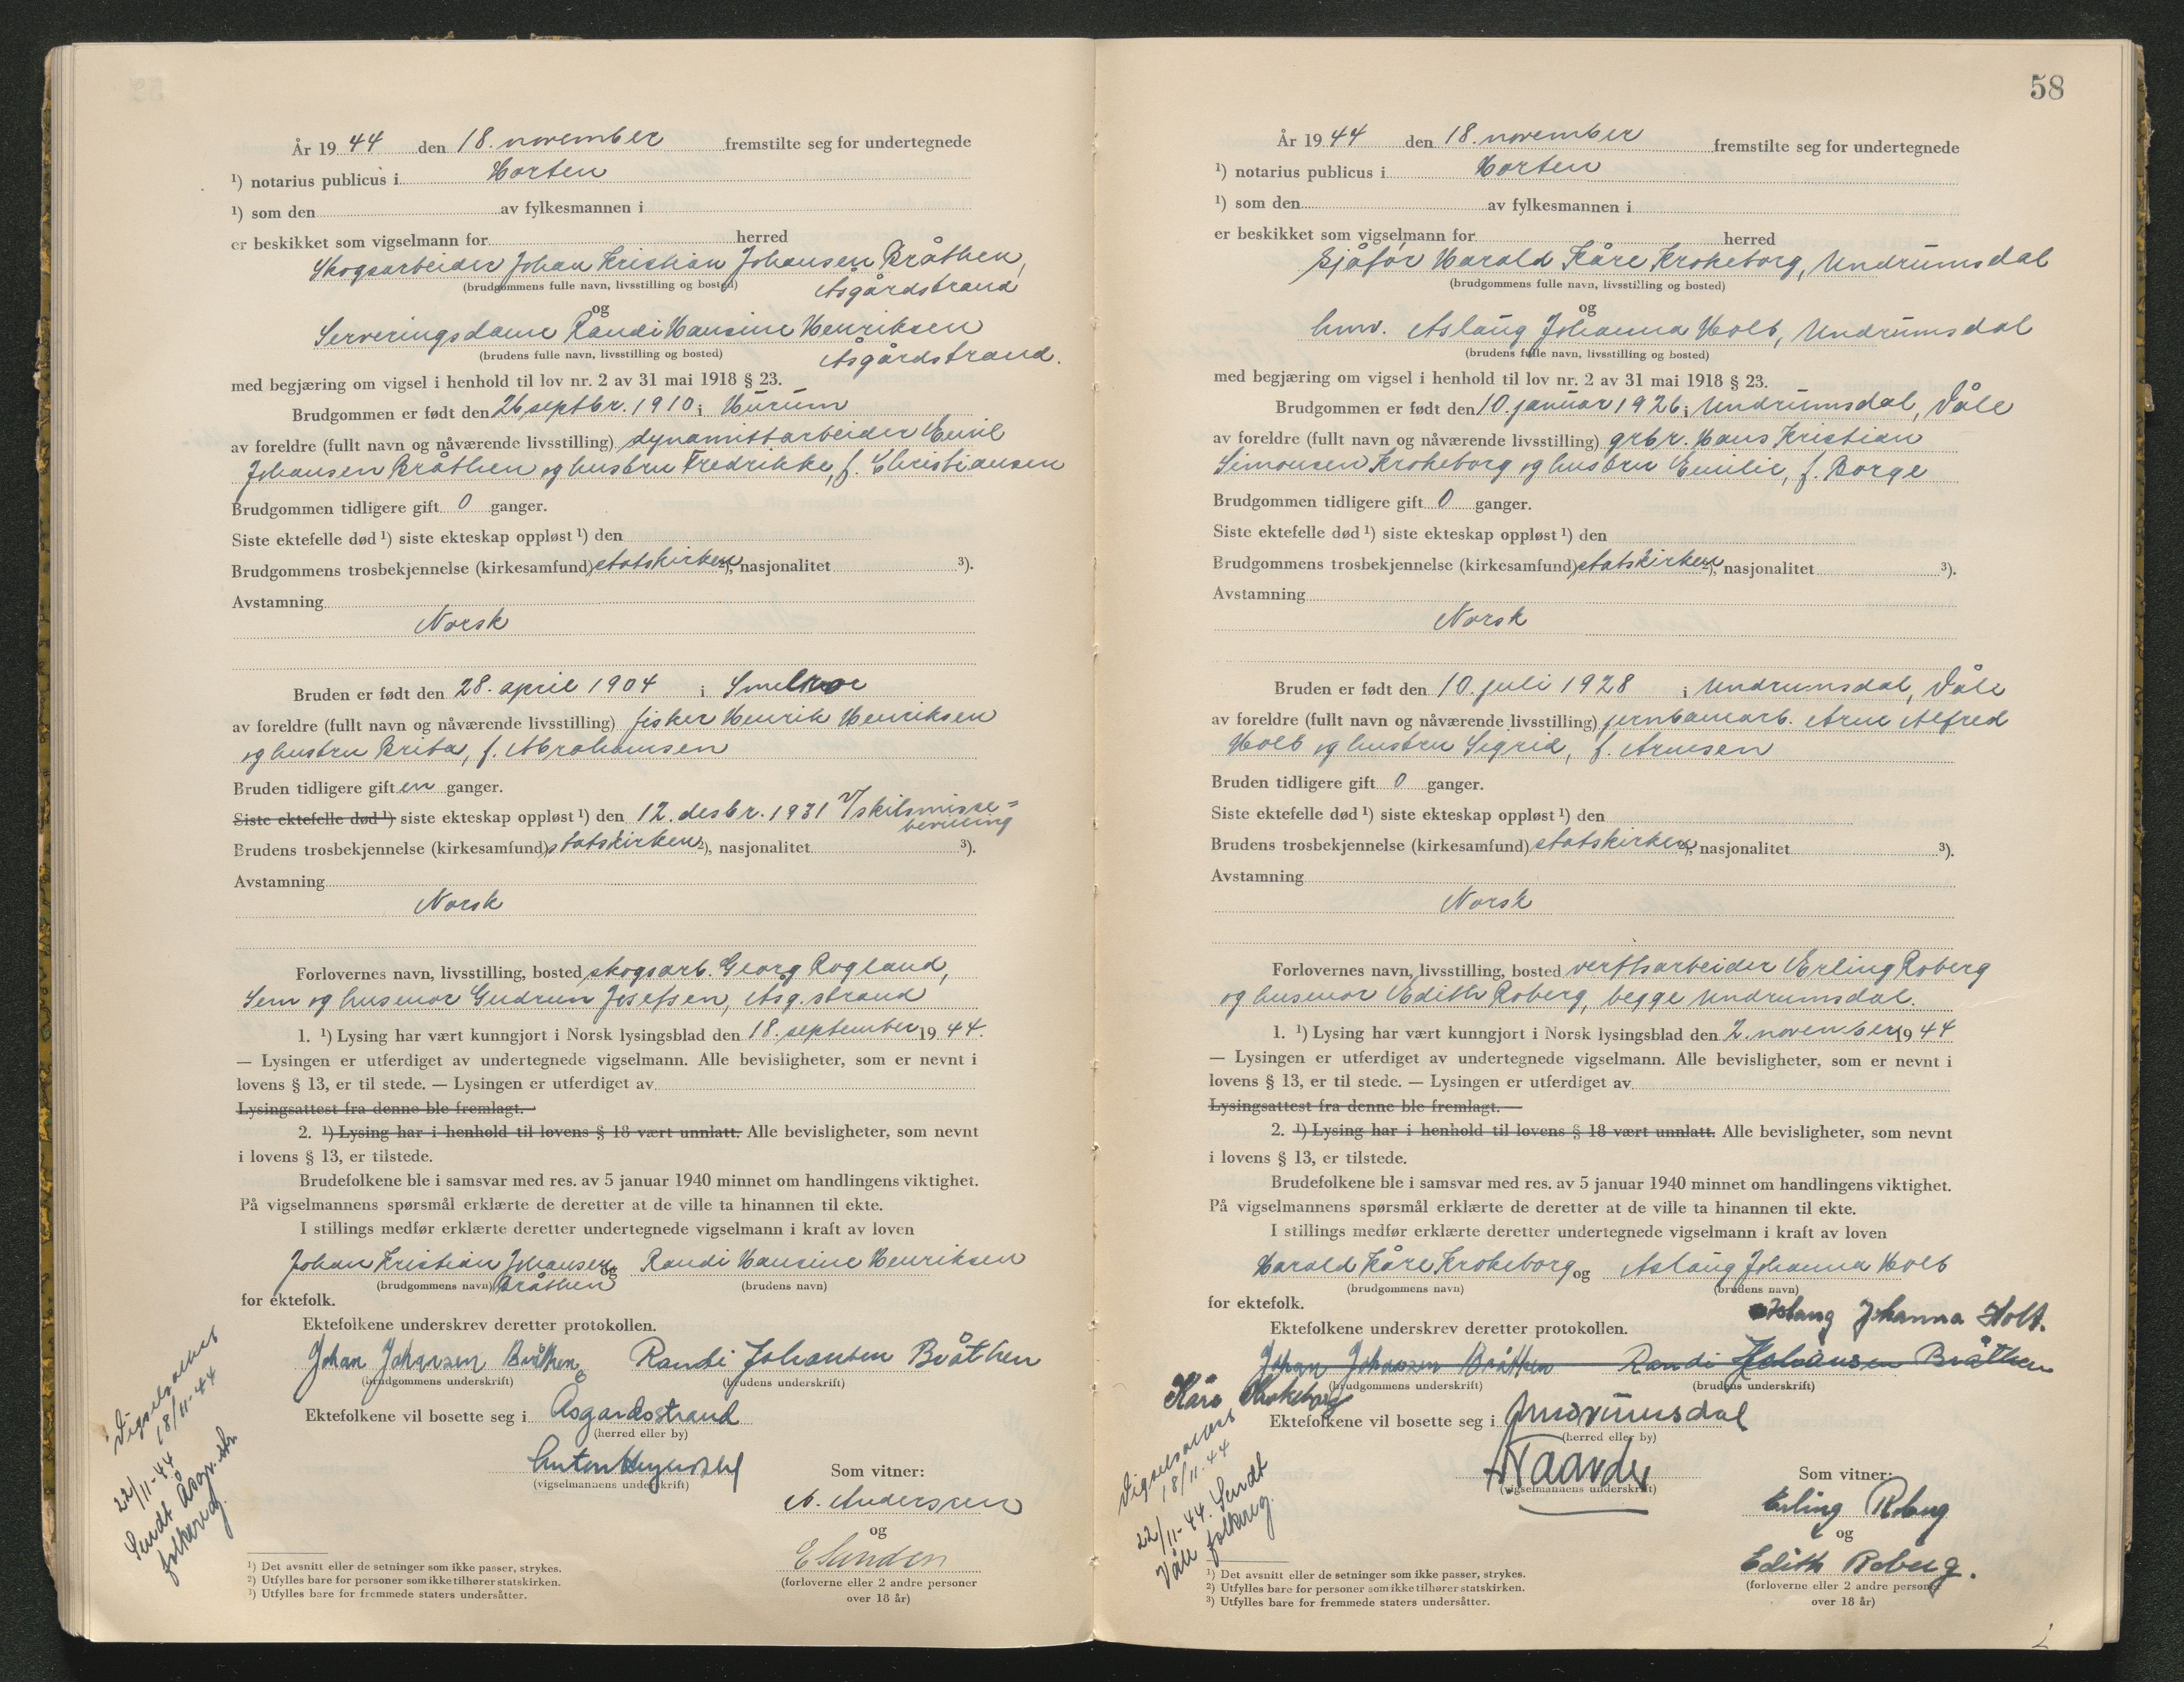 År 1944 den 18. november fremstilte seg for undertegnede
¹) notarius publicus i Horten
¹) som den av fylkesmannen i
er beskikket som vigselmann for herred
Skogsarbeider Johan Kristian Johansen Bråthen,
(brudgommens fulle navn, livsstilling og bosted) Åsgårdstrand
og
Serveringsdame Randi Hansine Henriksen
(brudens fulle navn, livsstilling og bosted) Åsgårdstrand.
med begjæring om vigsel i henhold til lov nr. 2 av 31 mai 1918 § 23.
Brudgommen er født den 26 septbr. 1910 i Hurum
av foreldre (fullt navn og nåværende livsstilling) dynamittarbeider Emil
Johansen Bråthen og hustru Fredrikke, f. Christiansen
Brudgommen tidligere gift 0 ganger.
Siste ektefelle død ¹) siste ekteskap oppløst ¹) den
Brudgommens trosbekjennelse (kirkesamfund) statskirken ²), nasjonalitet ³).
Avstamning
Norsk
Bruden er født den 28. april 1904 i
av foreldre (fullt navn og nåværende livsstilling) fisker Henrik Henriksen
og hustru Brita, f. Abrahamsen
Bruden tidligere gift en ganger.
Siste ektefelle død ¹) siste ekteskap oppløst ¹) den 12. desbr. 1931 v/skilsmisse=
bevilling
Brudens trosbekjennelse (kirkesamfund) statskirken ²), nasjonalitet ³).
Avstamning
Norsk
Forlovernes navn, livsstilling, bosted skogsarb. Georg Rogland,
Sem og husmor Gudrun Josefsen, Åsg.strand
1. ¹) Lysing har vært kunngjort i Norsk lysingsblad den 18. september 1944.
— Lysingen er utferdiget av undertegnede vigselmann. Alle bevisligheter, som er nevnt i
lovens § 13, er til stede. — Lysingen er utferdiget av
Lysingsattest fra denne ble fremlagt. —
2. ¹) Lysing har i henhold til lovens § 18 vært unnlatt. Alle bevisligheter, som nevnt
i lovens § 13, er tilstede.
Brudefolkene ble i samsvar med res. av 5 januar 1940 minnet om handlingens viktighet.
På vigselmannens spørsmål erklærte de deretter at de ville ta hinannen til ekte.
I stillings medfør erklærte deretter undertegnede vigselmann i kraft av loven
Johan Kristian Johansen og Randi Hansine Henriksen
(brudgommens navn) Bråthen (brudens navn)
for ektefolk.
Ektefolkene underskrev deretter protokollen.
Johan Johansen Bråthen Randi Johansen Bråthen
(brudgommens underskrift) (brudens underskrift)
Ektefolkene vil bosette seg i Åsgårdsstrand
(herred eller by)
Anton
(vigselmannens underskrift)
Som vitner:
A. Andersen
og
E Sunden
(forloverne eller 2 andre personer
over 18 år)
Vigselsattest
18/11-44
22/11-44
Sendt Åsgr.str.
folkereg.
¹) Det avsnitt eller de setninger som ikke passer, strykes.
²) Utfylles bare for personer som ikke tilhører statskirken.
³) Utfylles bare for fremmede staters undersåtter.
58
År 1944 den 18. november fremstilte seg for undertegnede
¹) notarius publicus i Horten
¹) som den av fylkesmannen i
er beskikket som vigselmann for herred
Sjåfør Harald Kåre Krokeborg, Undrumsdal
(brudgommens fulle navn, livsstilling og bosted)
og
hmv. Aslaug Johanna Holt, Undrumsdal
(brudens fulle navn, livsstilling og bosted)
med begjæring om vigsel i henhold til lov nr. 2 av 31 mai 1918 § 23.
Brudgommen er født den 10. januar 1926 i Undrumsdal, Våle
av foreldre (fullt navn og nåværende livsstilling) grbr. Hans Kristian
Simonsen Krokeborg og hustru Emilie, f. Borge
Brudgommen tidligere gift 0 ganger.
Siste ektefelle død ¹) siste ekteskap oppløst ¹) den
Brudgommens trosbekjennelse (kirkesamfund) statskirken ²), nasjonalitet ³).
Avstamning
Norsk
Bruden er født den 10. juli 1928 i Undrumsdal, Våle
av foreldre (fullt navn og nåværende livsstilling) jernbanearb. Arne Alfred
Holt og hustru Sigrid, f. Arnesen
Bruden tidligere gift 0 ganger.
Siste ektefelle død ¹) siste ekteskap oppløst ¹) den
Brudens trosbekjennelse (kirkesamfund) statskirken ²), nasjonalitet ³).
Avstamning
Norsk
Forlovernes navn, livsstilling, bosted verftsarbeider Erling Roberg
og husmor Edith Roberg, begge Undrumsdal.
1. ¹) Lysing har vært kunngjort i Norsk lysingsblad den 2. november 1944
— Lysingen er utferdiget av undertegnede vigselmann. Alle bevisligheter, som er nevnt i
lovens § 13, er til stede. — Lysingen er utferdiget av
Lysingsattest fra denne ble fremlagt. —
2. ¹) Lysing har i henhold til lovens § 18 vært unnlatt. Alle bevisligheter, som nevnt
i lovens § 13, er tilstede.
Brudefolkene ble i samsvar med res. av 5 januar 1940 minnet om handlingens viktighet.
På vigselmannens spørsmål erklærte de deretter at de ville ta hinannen til ekte.
I stillings medfør erklærte deretter undertegnede vigselmann i kraft av loven
Harald Kåre Krokeborg og Aslaug Johanna Holt
(brudgommens navn) (brudens navn)
for ektefolk.
Aslaug Johanna Holt.
Ektefolkene underskrev deretter protokollen.
Johan Johansen Bråthen Randi Johansen Bråthen
(brudgommens underskrift) (brudens underskrift)
Kåre Krokeborg
Ektefolkene vil bosette seg i Undrumsdal
(herred eller by)
(vigselmannens underskrift)
Som vitner:
Erling Roberg
og
Edith Roberg.
(forloverne eller 2 andre personer
over 18 år)
Vigselsattest
18/11-44
22/11-44. Sendt
Våle folkereg.
¹) Det avsnitt eller de setninger som ikke passer, strykes.
²) Utfylles bare for personer som ikke tilhører statskirken.
³) Utfylles bare for fremmede staters undersåtter.